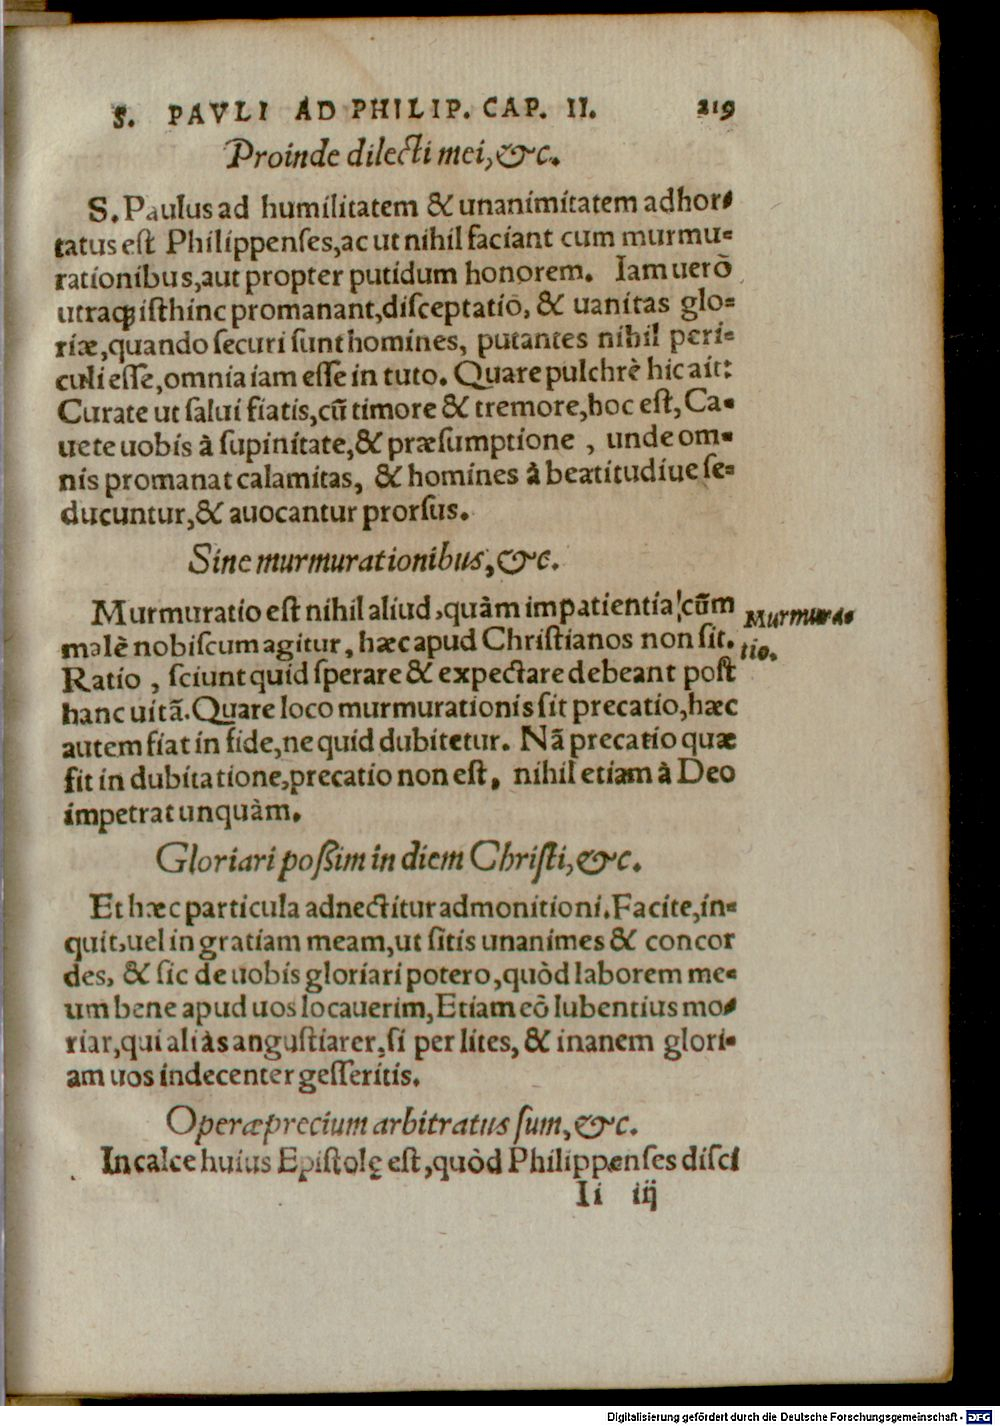 S. PAVLI AD PHILIP. CAP. II. 219
Proinde dilecti mei, &c.
S. Paulus ad humilitatem & unanimitatem adhor⸗
tatus est Philippenses, ac ut nihil faciant cum murmu⸗
rationibus, aut propter putidum honorem. Iam uerò
utraqꝫ isthinc promanant, disceptatiō, & uanitas glo⸗
riæ, quando securi sunt homines, putantes nihil peri⸗
culi esse, omnia iam esse in tuto. Quare pulchrè hic ait:
Curate ut salui fiatis, cū timore & tremore, hoc est, Ca⸗
uete uobis à supinitate, & præsumptione , unde om⸗
nis promanat calamitas, & homines à beatitudiue se⸗
ducuntur, & auocantur prorsus.
Sine murmurationibus, &c.
Murmuratio est nihil aliud, quàm impatientia, cūm
malè nobiscum agitur, hæc apud Christianos non sit.
Murmura⸗
tio.
Ratio , sciunt quid sperare & expectare debeant post
hanc uitā. Quare loco murmurationis sit precatio, hæc
autem fiat in fide, ne quid dubitetur. Nā precatio quæ
fit in dubitatione, precatio non est, nihil etiam à Deo
impetrat unquàm.
Gloriari possim in diem Christi, &c.
Et hæc particula adnectitur admonitioni. Facite, in⸗
quit, uel in gratiam meam, ut sitis unanimes & concor
des, & sic de uobis gloriari potero, quòd laborem me⸗
um bene apud uos locauerim, Etiam eò lubentius mo⸗
riar, qui aliàs angustiarer, si per lites, & inanem glori⸗
am uos indecenter gesseritis.
Operæprecium arbitratus sum, &c.
In calce huius Epistolę est, quòd Philippenses disci
Ii iij
Digitalisierung gefördert durch die Deutsche Forschungsgemeinschaft - DFG